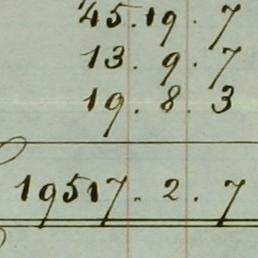 45.19.7
13.9.7
19.8.3
19517.2.7